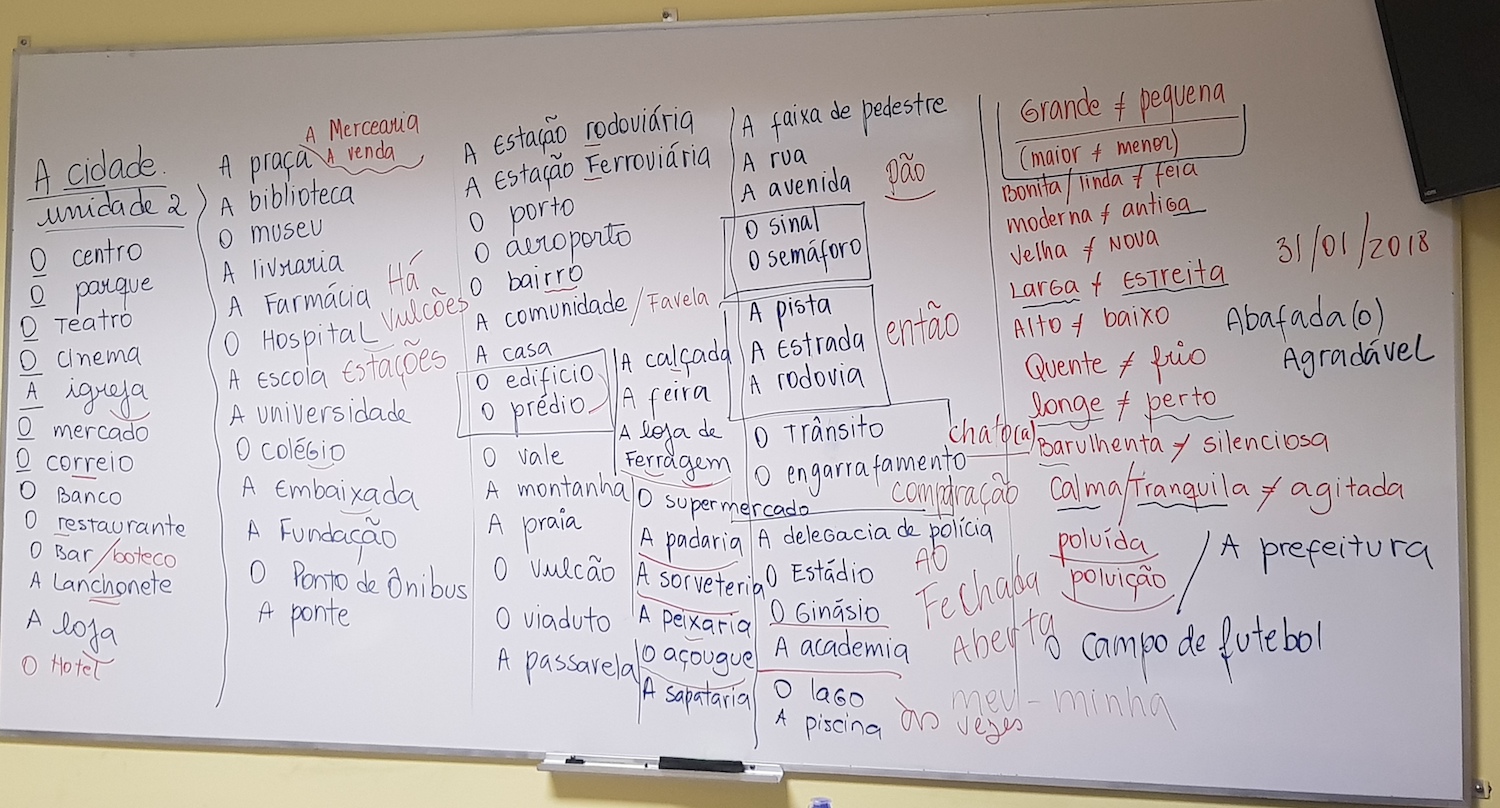 A cidade.
unidade 2
O centro
O parque
O Teatro
O Cinema
A igreja
O mercado
O correio
O Banco
O restaurante
O Bar/boteco
A Lanchonete
A loja
O Hotel
A Mercearia
A venda
A praça
A biblioteca
O museu
A livraria
A Farmácia
O Hospital
A Escola
A universidade
O colégio
A Embaixada
A Fundação
O Ponto de Ônibus
A ponte
Há
Vulcões
Estações
A Estação rodoviária
A Estação Ferroviária
O porto
O aeroporto
O bairro
A comunidade/Favela
A casa
O edificio
O prédio
O vale
A montanha
A praia
O vulcão
O viaduto
A passarela
A calçada
A feira
A loja de
Ferragem
O supermercado
A padaria
A sorveteria
A peixaria
O açougue
A sapataria
A faixa de pedestre
A rua
A avenida
O sinal
O semáforo
A pista
A Estrada
A rodovia
O Trânsito
O engarrafamento
A delegacia de polícia
O Estádio
O Ginásio
A academia
O lago
A piscina
pão
então
chato(a)
comparação
AO
Fechada
Aberta
às vezes
meu - minha
Grande ≠ pequena
(maior ≠ menor)
Bonita/linda ≠ feia
moderna ≠ antiga
velha ≠ Nova
Larga ≠ Estreita
Alto ≠ baixo
Quente ≠ frio
longe ≠ perto
Barulhenta ≠ silenciosa
Calma/Tranquila ≠ agitada
poluída
poluição
31/01/2018
Abafada(o)
Agradável
A prefeitura
O campo de futebol